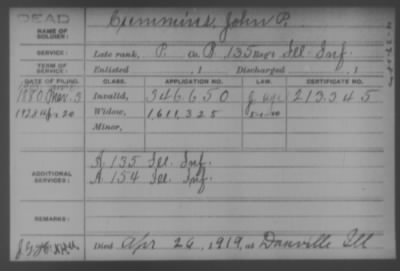 DEAD
NAME OF SOLDIER: Cummins, John P.
SERVICE: Late rank, P. Co. B, 135 Reg't Ill. Inf.
TERM OF SERVICE: Enlisted , 1 Discharged , 1
DATE OF FILING. CLASS. APPLICATION NO. CERTIFICATE NO.
1880 Nov. 3 Invalid, 346.650 213.345
1928 20 Widow, 1,611,325
Minor,
ADDITIONAL SERVICES: A. 135 Ill. Inf.
A 154 Ill. Inf.
REMARKS:
Died Apr 26, 1919, at Danville Ill